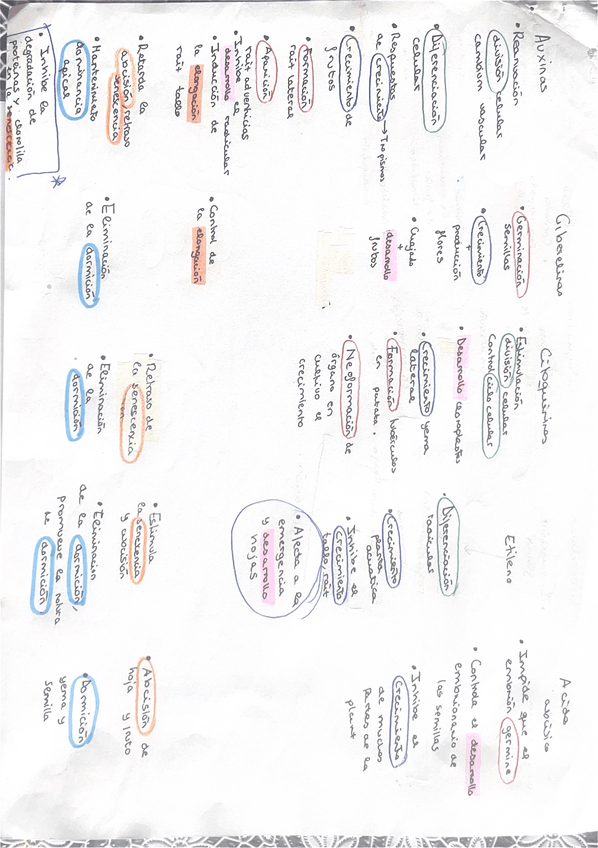 Auxinas
• Reanivación
división celular
cambium vascular
• Diferenciación
celular
• Respuestas
de crecimiento → Tropismos
• Crecimiento de
frutos
• Formación
raíz lateral
• Aparición
raíz adventicios
• Inhibe el
desarrollo radicular
• Inducción de
la elongación
raíz tallo
• Retarda la
abcisión, retraso
senescencia
• Mantenimieto
dominancia
apical
• Inhibe la
degradación de
proteínas y clorofila
en senescenc. *
Giberelinas
• Germinación
semillas
• Crecimiento
+
producción
flores
• Cuajado
+
desarrollo
frutos
• Control de
la elongación
• Eliminación
de la dormición
Citoquininas
• Estimulación
división celular
control ciclo celular
• Desarrollo cloroplastos
• Crecimiento yema
lateral
• Formación tubérculos
en patata.
• Neoformación de
órgano en
cultivo el
crecimiento
• Retraso de
la senescencia
• Eliminación
de la
dormición
Etileno
• Diferenciación
radicular
• Crecimiento
planta
acuatica
• Inhibe el
crecimiento
tallo, raíz
• Afecta a la
emergencia
y desarrollo
hojas
• Estimula
la senescencia
y abcisión
• Eliminación
de la dormición,
promueve la
de
dormición
Acido
abcísico
• Impide que el
embrión germine
• Controla el desarrollo
embrionario de
las semillas
• Inhibe el
crecimiento
de muchas
partes de la
plant
• Abcisión de
hoja y fruto
• Dormición
yema y
semilla